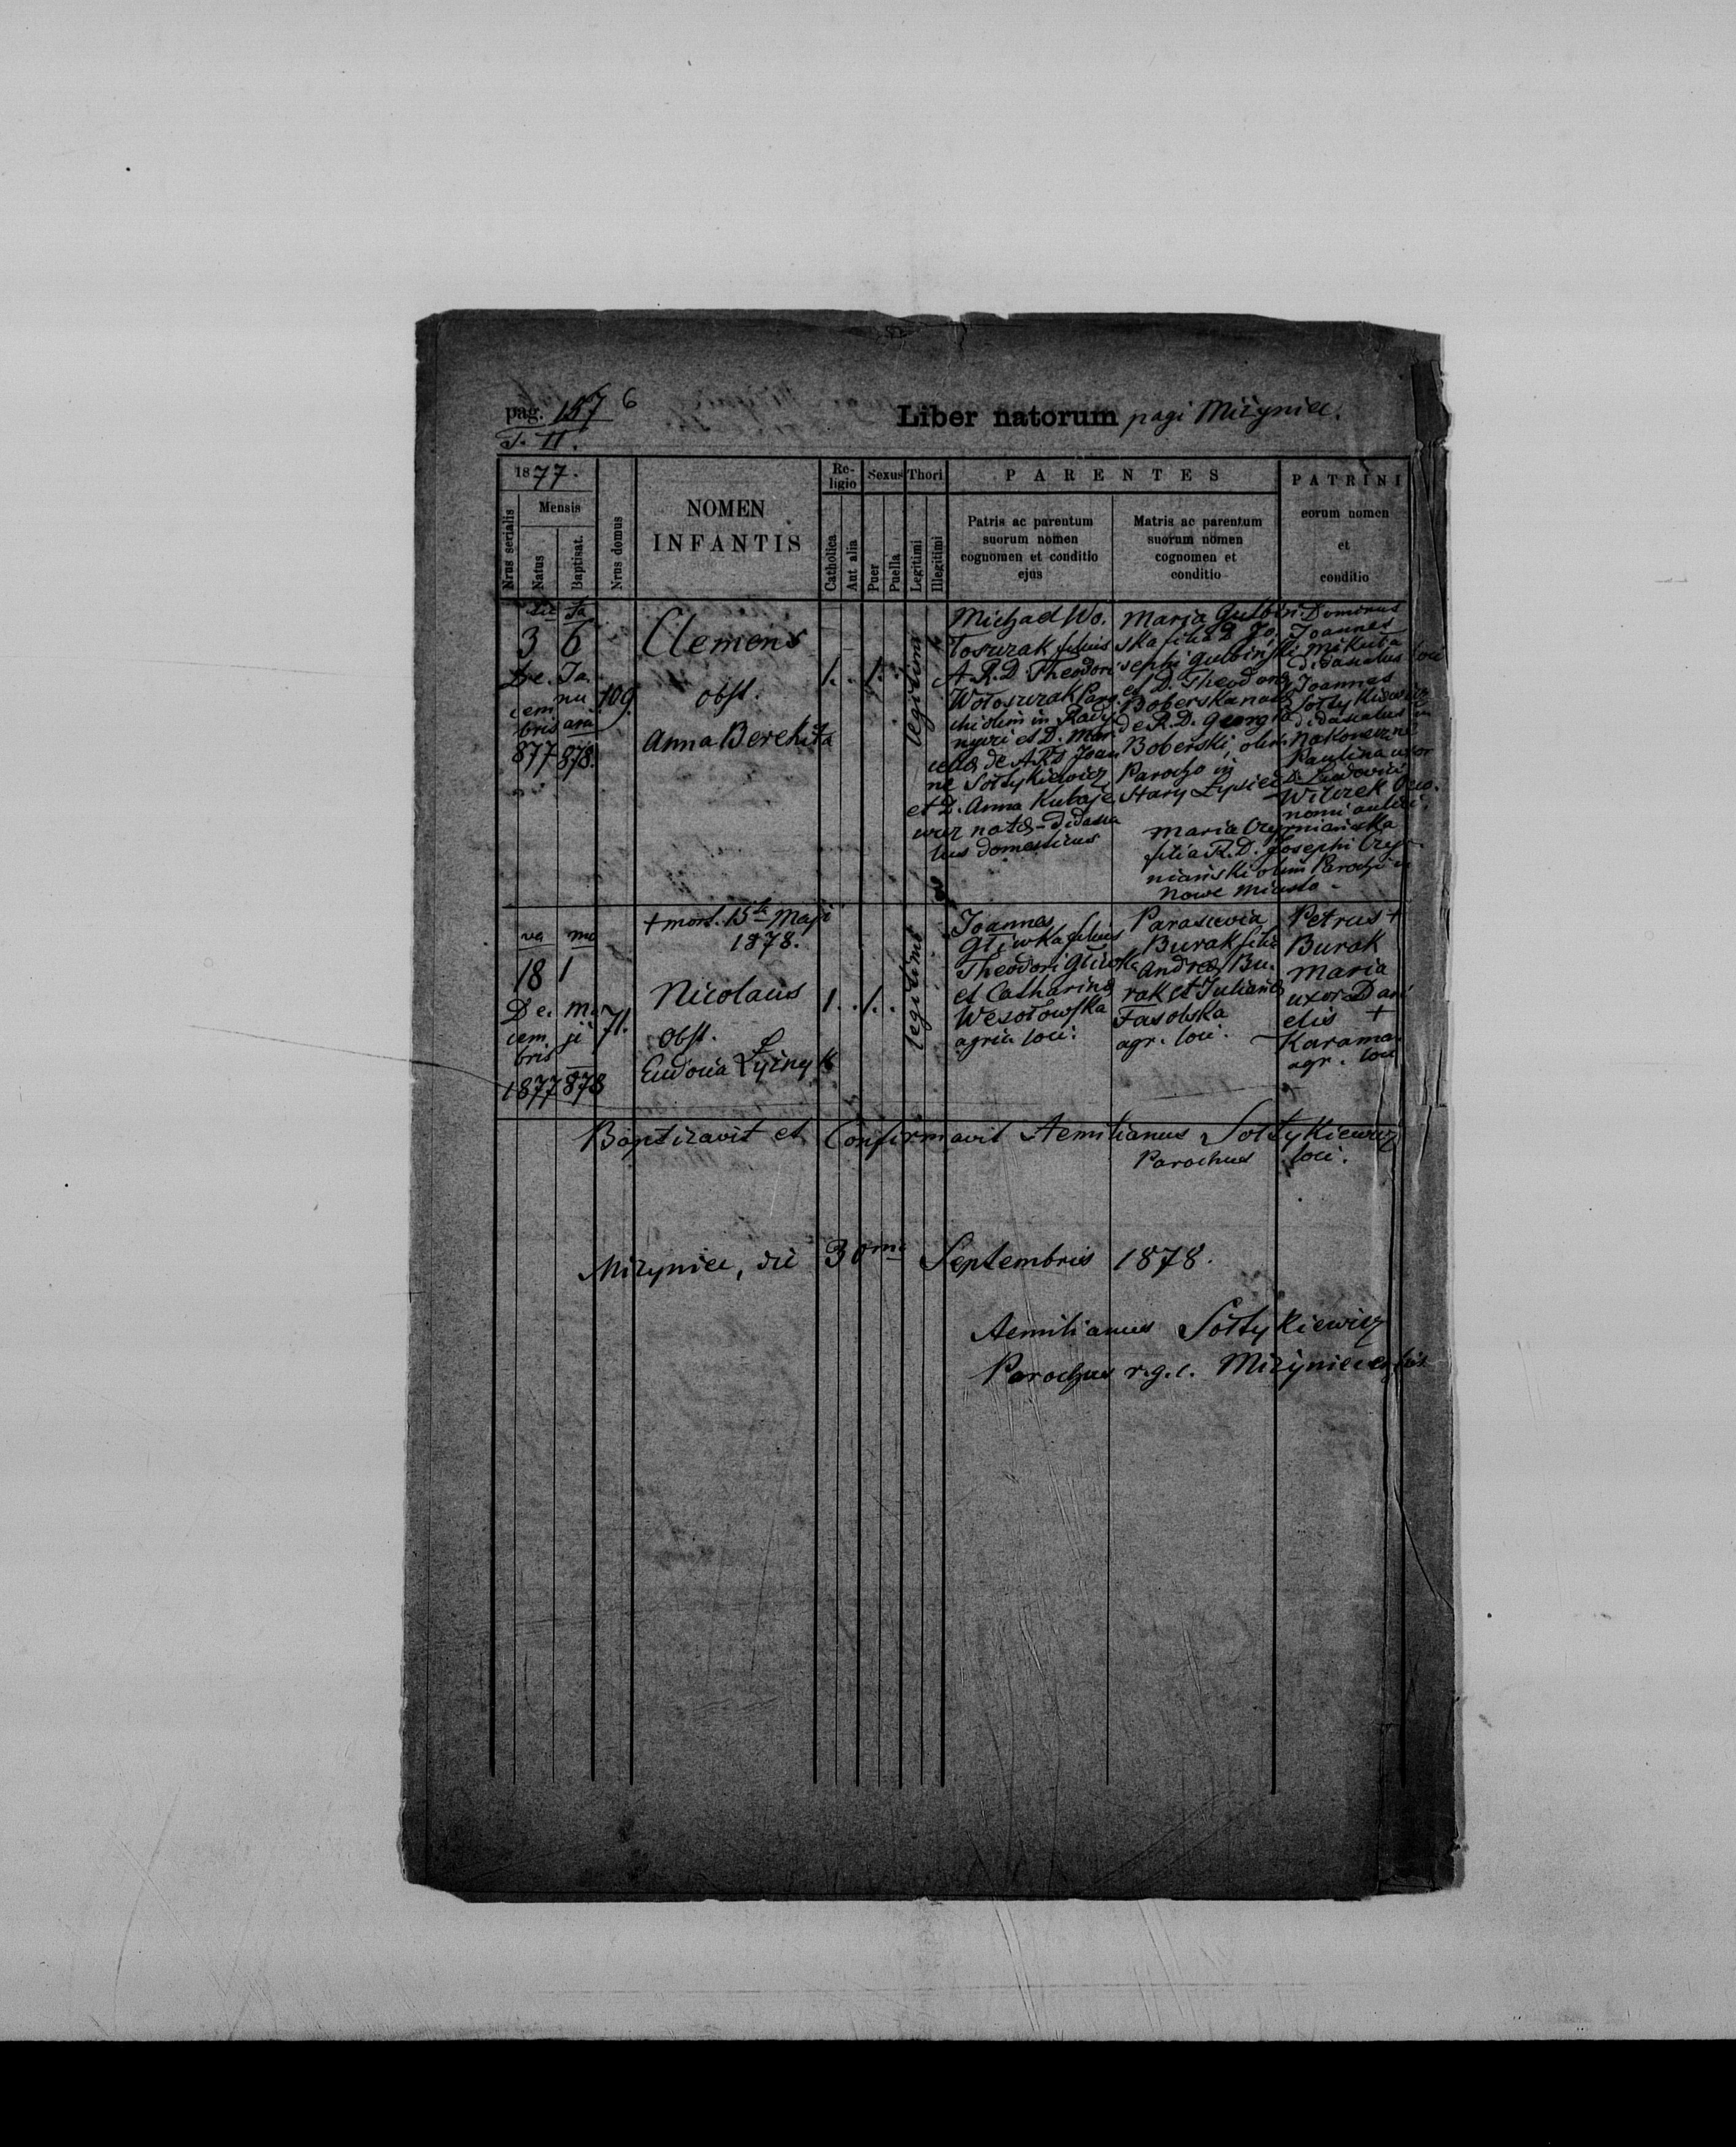 pag. 157 6
T. II.
Liber natorum pagi Miżyniec.
1877.
Nrus serialis
Mensis
Natus
Baptisat.
Nrus domus
NOMEN
INFANTIS
Re-
ligio
Catholica
Aut alia
Sexus
Puer
Puella
Thori
Legitimi
Illegitimi
PARENTES
Patris ac parentum
suorum nomen
cognomen et conditio
ejus
Matris ac parentum
suorum nomen
cognomen et
conditio
PATRINI
eorum nomen
et
conditio
3
De.
cem
bris
877
6
Ja.
nu
arii
878.
109.
Clemens
obst.
Anna Berehita
1.
1.
legitimi
Michael Wo.
łoszczak filius
A. R. D. Theodori
Wołoszczak Paro
chi olim in Rady
et D. Mar
de A. R. D. Joan
ne Sołtykiewicz
et D. Anna
nata - Didasca
lus domesticus
Maria Gulbin.
ska filia D. Jo.
sephi Gulbinski
et D. Theodora
Boberska nata
de R. D. Georgio
Boberski, olim
Parocho in
Stary
Maria
filia R. D. Josephi
niański olim Parochi in
Nowe Miasto -
Dominus
Joannes
Mikuta
didascalus loci
Joannes
Sołtykiewicz
didascalus in
Nakoneczne
Paulina uxor
D. Ludovici
Wilczek Oeco.
nomi aulici.
va
18
De.
cem
bris
1877
ma
1
Ma.
ji
878
71.
+ mort. 15ta Maji
1878.
Nicolaus
obst.
Eudocia
1.
1.
legitimi
Joannes
Gliwka filius
Theodori Gliwka
et Catharina
Wesołowska
agric. loci.
Parascevia
Burak filia
Andreae Bu.
rak et Julianae
Fasolska
agr. loci.
Petrus +
Burak
Maria
uxor Dani
elis +
Karama
agr. loci
Baptizavit et Confirmavit Aemilianus Sołtykiewicz
Parochus loci.
Miżyniec, die 30ma Septembris 1878.
Aemilianus Sołtykiewicz
Parochus r.g.c. Miżyniecensis